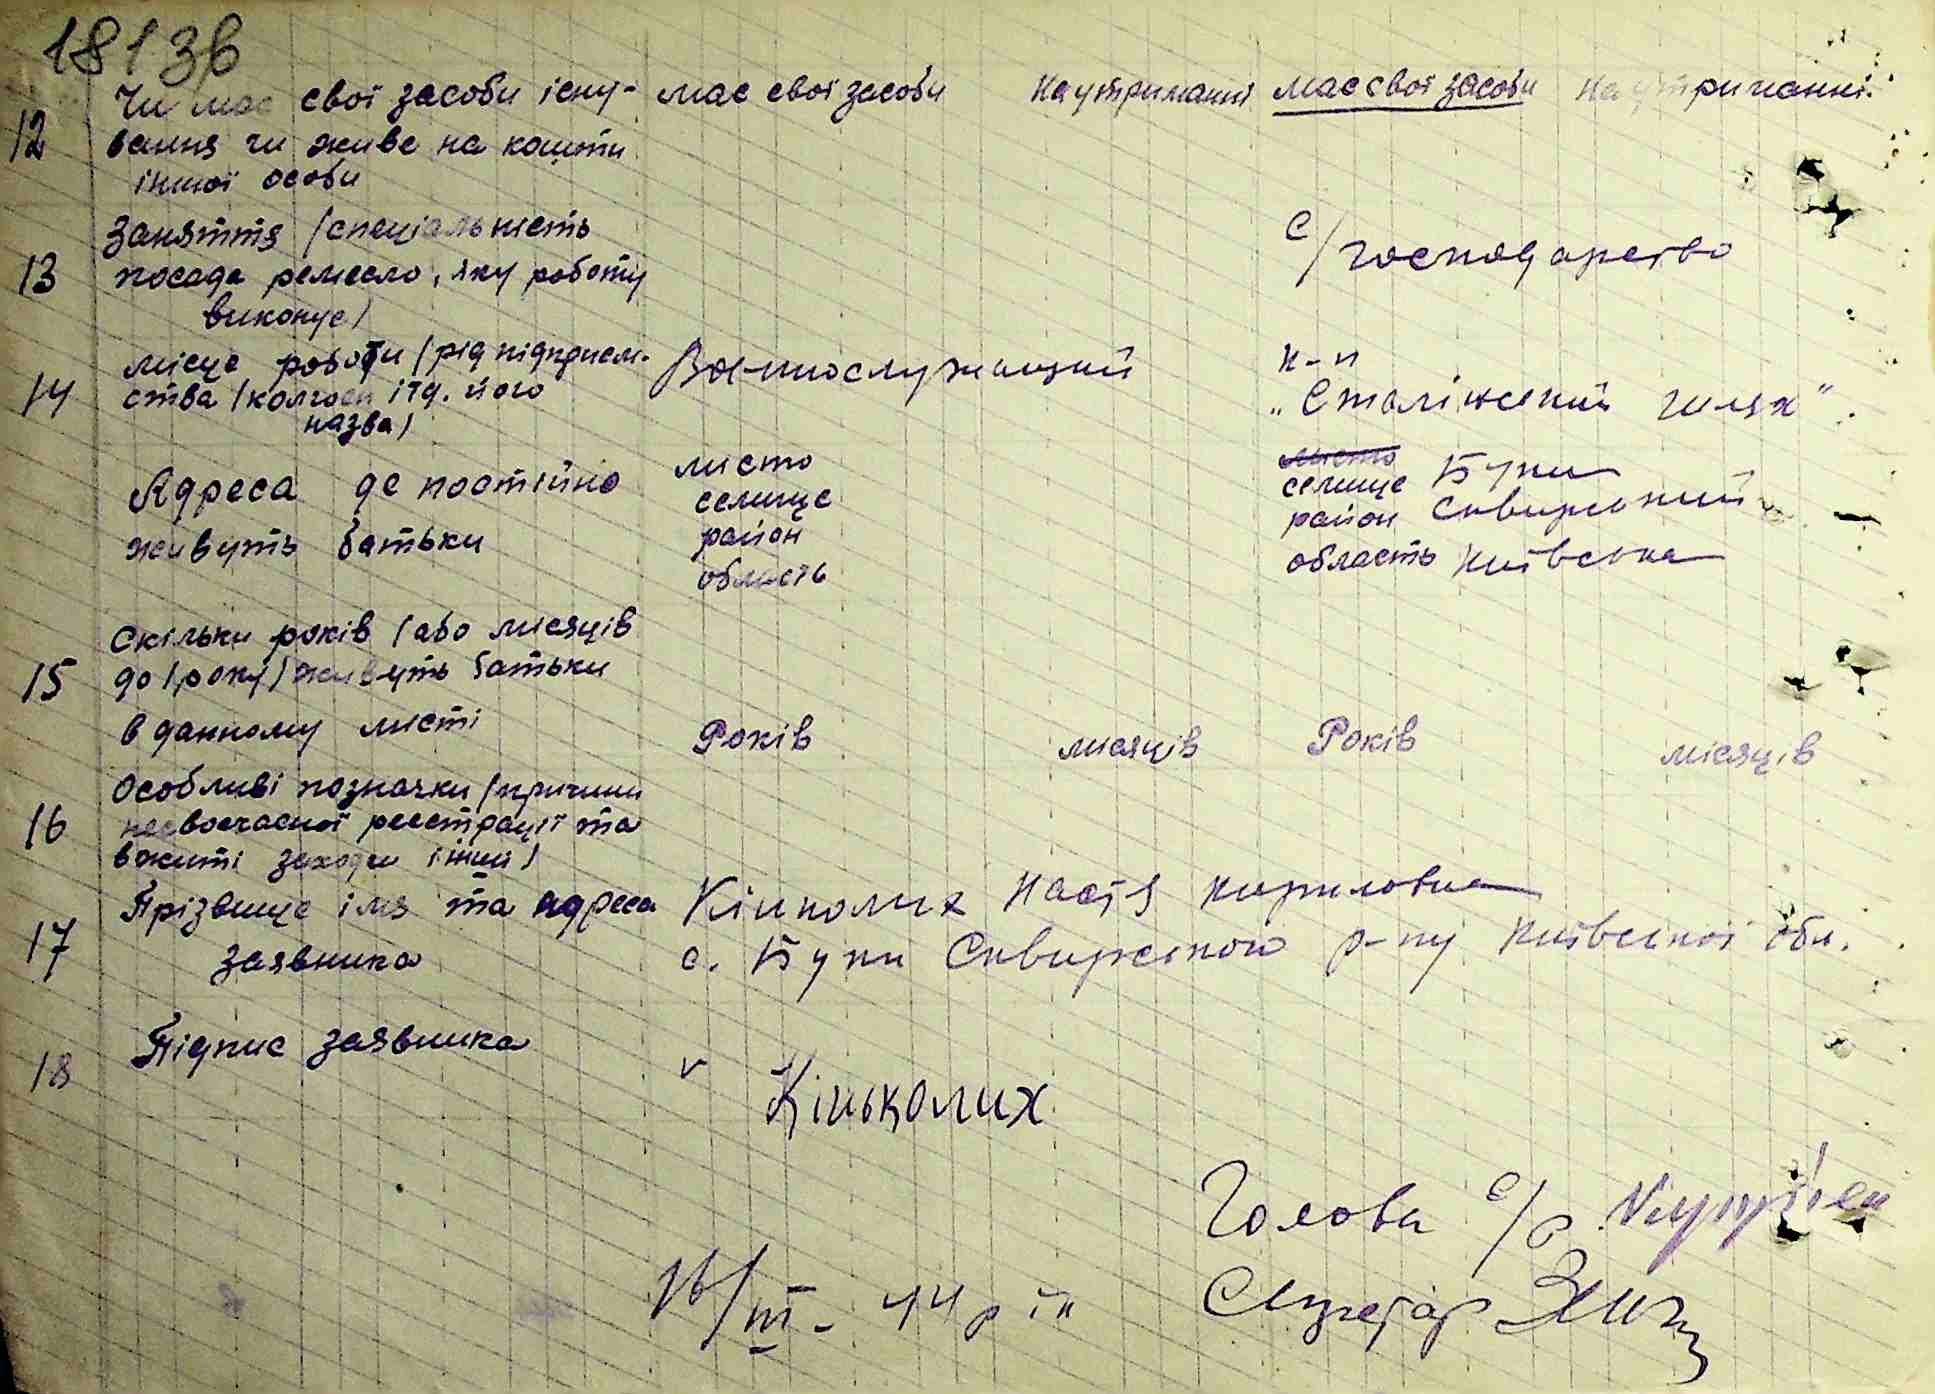 181 зв
12 Чи має свої засоби існу- має свої засоби на утриманні має свої засоби на утриманні
вання чи живе на кошти
іншої особи
13 Заняття /спеціальність с/господарство
посада ремесло, яку роботу
виконує/
14 місце роботи /рід підприєм- Воєннослужащий к-п
ства /колгосп і т.д. його "Сталінський шлях"
назва/
Адреса де постійно місто місто
живуть батьки селище селище Буки
район район Сквирський
область область Київська
15 Скільки років /або місяців
до 1 року/ живуть батьки
в данному місті Років місяців Років місяців
16 Особливі позначки /причини
несвоєчасної реєстрації та
вжиті заходи інші/
17 Прізвище імя та адреса Кінколих Настя Кириловна
заявника с. Буки Сквирського р-ну Київської обл.
18 Підпис заявника v Кінько­лих
Голова с/р
16/III - 44 рік Секретар